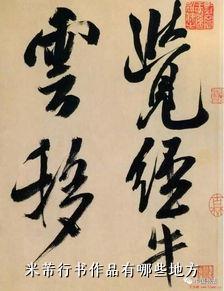 覺經牛
雲移
米芾行书作品有哪些地方